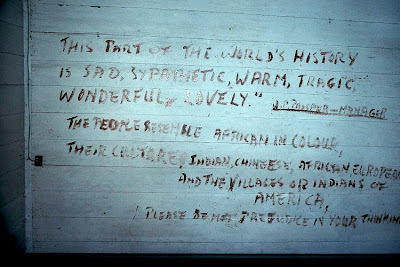 THIS PART OF THE WORLD'S HISTORY
IS SAD, SYPATHETIC, WARM, TRAGIC,
WONDERFUL, LOVELY."
MANAGER
THE PEOPLE RESEMBLE AFRICAN IN COLOUR,
THEIR CULTURE, INDIAN, CHINEESE, AFRICAN, EUROPEAN
AND THE VILLAGES OR INDIANS OF
AMERICA,
PLEASE BE NOT PREJUDICE IN YOUR THINKING